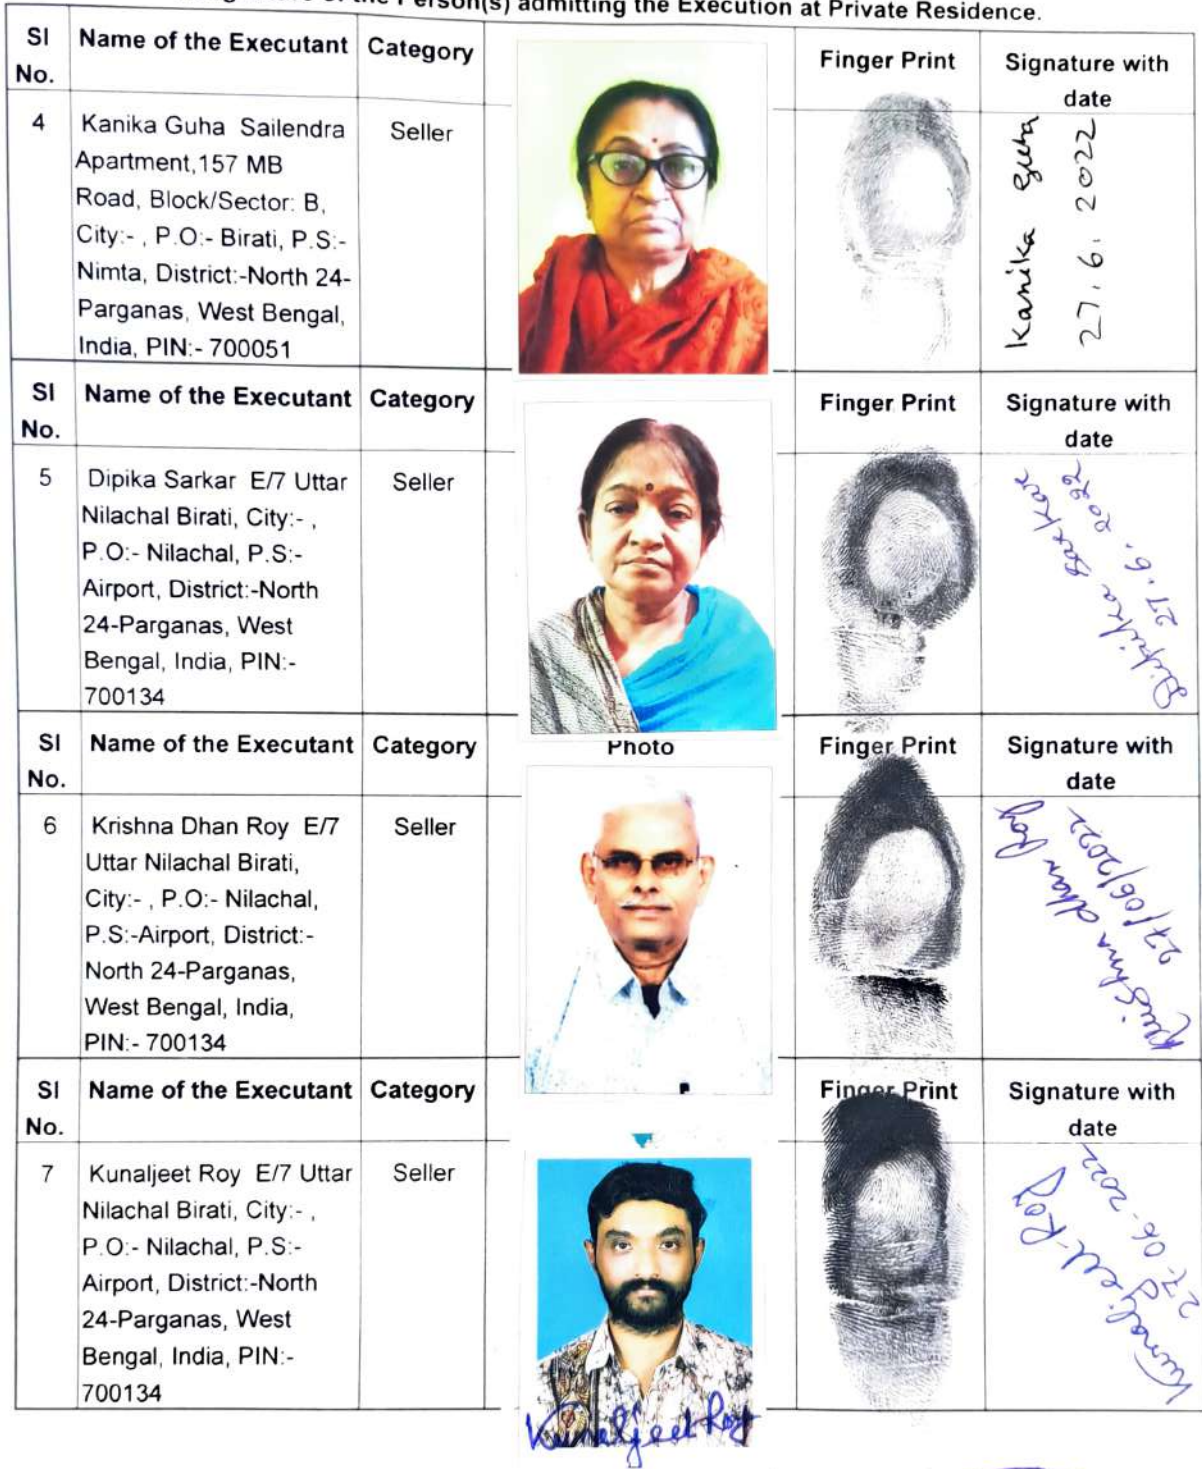 the Person(s) admitting the Execution at Private Residence.
Sl No. Name of the Executant Category Finger Print Signature with date
4 Kanika Guha Sailendra Seller
Apartment,157 MB
Road, Block/Sector: B,
City:- , P.O:- Birati, P.S:-
Nimta, District:-North 24-
Parganas, West Bengal,
India, PIN:- 700051
Kanika Guha
27.6.2022
Sl No. Name of the Executant Category Finger Print Signature with date
5 Dipika Sarkar E/7 Uttar Seller
Nilachal Birati, City:- ,
P.O:- Nilachal, P.S:-
Airport, District:-North
24-Parganas, West
Bengal, India, PIN:-
700134
Dipika Sarkar
27.6.2022
Sl No. Name of the Executant Category Photo Finger Print Signature with date
6 Krishna Dhan Roy E/7 Seller
Uttar Nilachal Birati,
City:- , P.O:- Nilachal,
P.S:-Airport, District:-
North 24-Parganas,
West Bengal, India,
PIN:- 700134
Krishna dhan Roy
27/06/2022
Sl No. Name of the Executant Category Finger Print Signature with date
7 Kunaljeet Roy E/7 Uttar Seller
Nilachal Birati, City:- ,
P.O:- Nilachal, P.S:-
Airport, District:-North
24-Parganas, West
Bengal, India, PIN:-
700134
Kunaljeet Roy
27-06-2022
Kunaljeet Roy